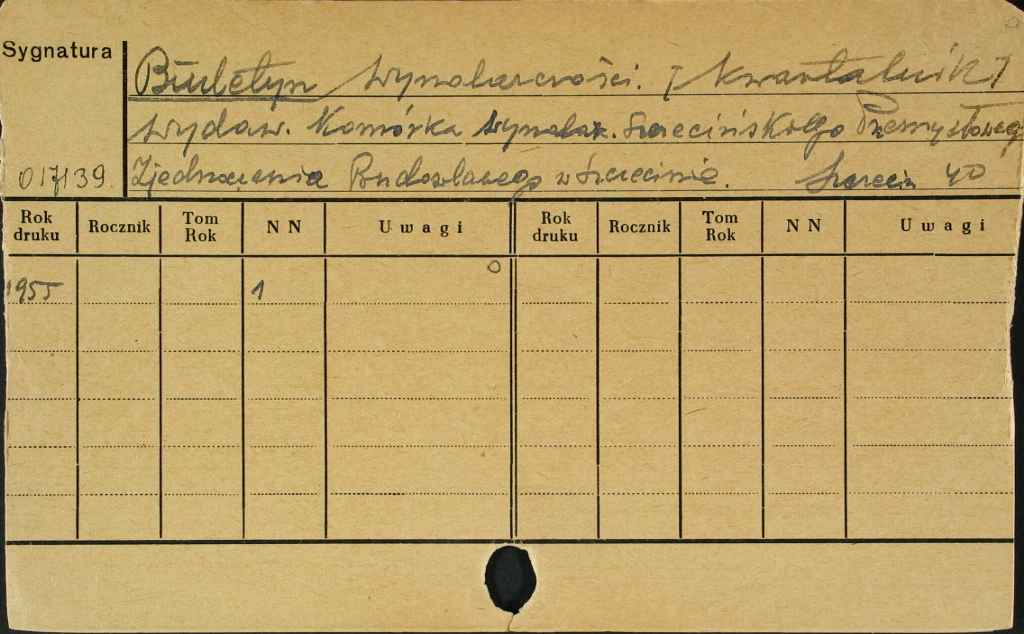 Sygnatura
Biuletyn Wynalazczości. [Kwartalnik]
Wydaw. Komórka Wynalaz. Szczecińskiego Przemysłowego
017139 Zjednoczenia Budowlanego w Szczecinie. Szczecin 40
Rok druku Rocznik Tom Rok NN Uwagi Rok druku Rocznik Tom Rok NN Uwagi
1955 1